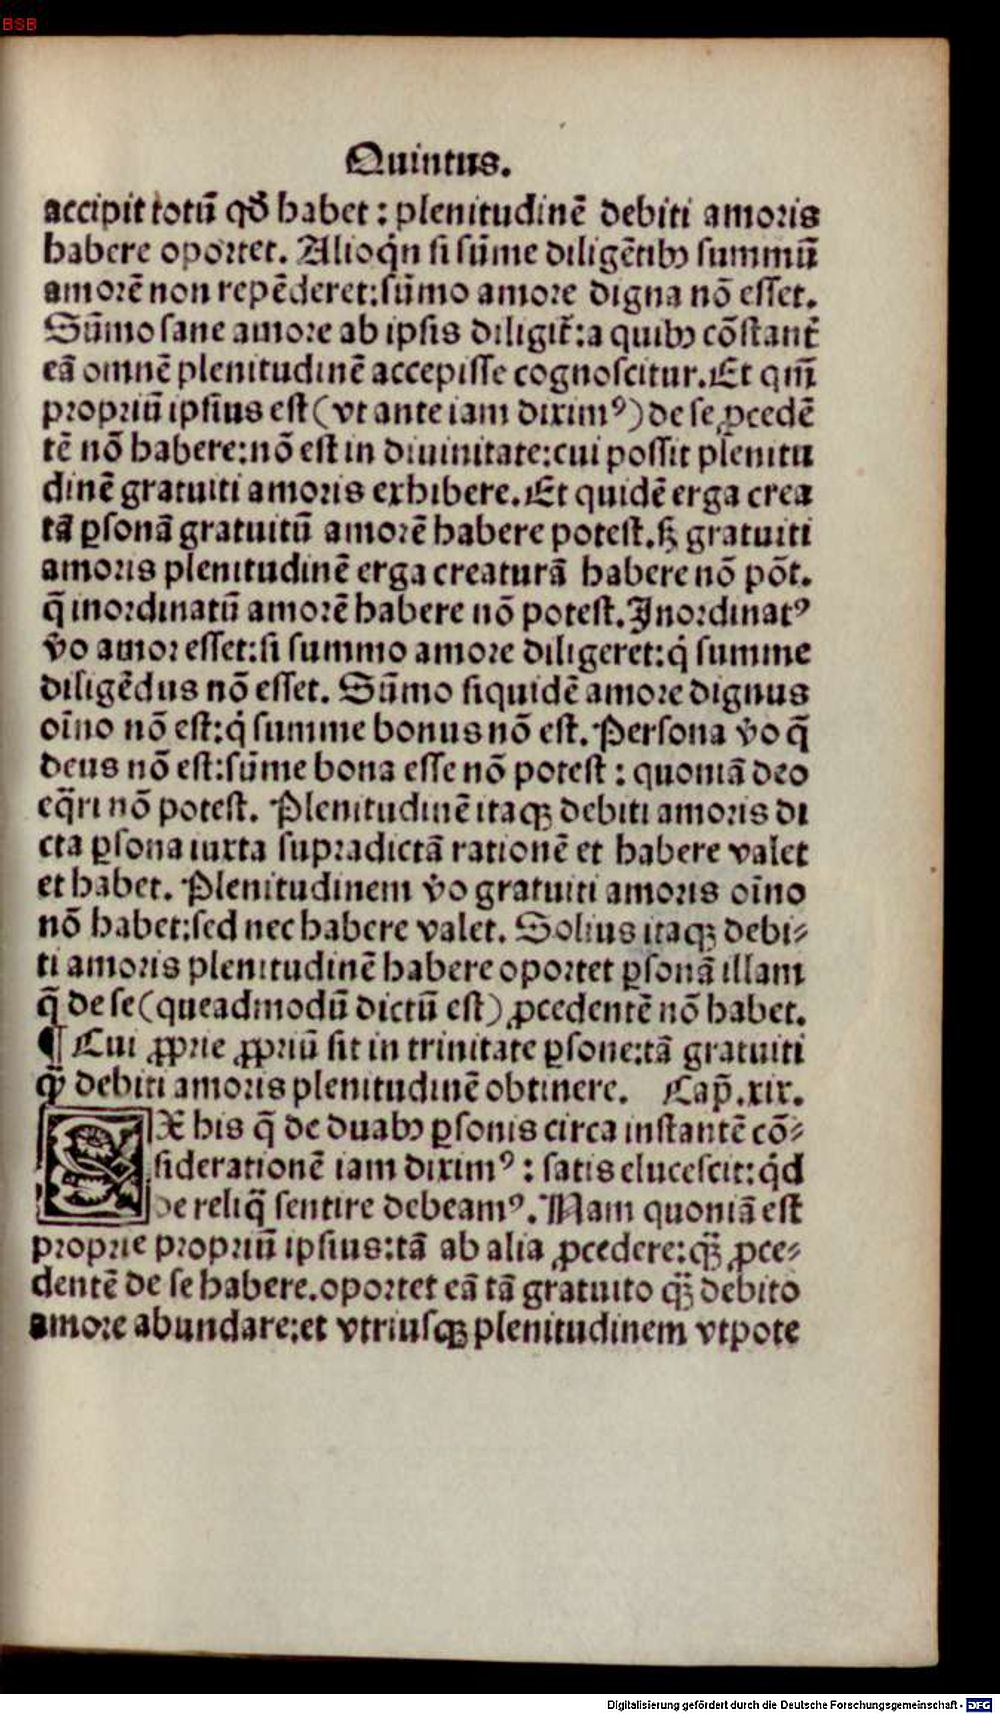 BSB
Quintus.
accipit totū qđ habet : plenitudinē debiti amoris
habere oportet. Alioqͥn si sūme diligētibꝰ summū
amorē non repēderet:sūmo amore digna nō esset.
Sūmo sane amore ab ipsis diligit̄:a quibꝰ cōstant̄
eā omnē plenitudinē accepisse cognoscitur.Et qm̄
propriū ipsius est(vt ante iam diximꝰ)de se ꝓcedē
tē nō habere:nō est in diuinitate:cui possit plenitu
dinē gratuiti amoris exhibere.Et quidē erga crea
tā ꝑsonā gratuitū amorē habere potest.sꝫ gratuiti
amoris plenitudinē erga creaturā habere nō pōt.
q̄ inordinatū amorē habere nō potest.Inordinatꝰ
v̊o amor esset:si summo amore diligeret:qͥ summe
diligēdus nō esset. Sūmo siquidē amore dignus
oīno nō est:qͥ summe bonus nō est. Persona v̊o q̄
deus nō est:sūme bona esse nō potest : quoniā deo
eq̄ri nō potest. Plenitudinē itaqꝫ debiti amoris di
cta ꝑsona iuxta supradictā rationē et habere valet
et habet. Plenitudinem v̊o gratuiti amoris oīno
nō habet:sed nec habere valet. Solius itaqꝫ debi⸗
ti amoris plenitudinē habere oportet ꝑsonā illam
q̄ de se(queadmodū dictū est) ꝓcedentē nō habet.
¶ Cui ꝓprie ꝓpriū sit in trinitate ꝑsone:tā gratuiti
qꝫ̄ debiti amoris plenitudinē obtinere. Cap̄.xix.
EX his q̄ de duabꝰ ꝑsonis circa instantē cō⸗
siderationē iam diximꝰ : satis elucescit:qͥd
de reliq̄ sentire debeamꝰ. Nam quoniā est
proprie propriū ipsius:tā ab alia ꝓcedere:qꝫ̄ ꝓce⸗
dentē de se habere.oportet eā tā gratuito qꝫ̄ debito
amore abundare:et vtriusqꝫ plenitudinem vtpote
Digitalisierung gefördert durch die Deutsche Forschungsgemeinschaft - DFG